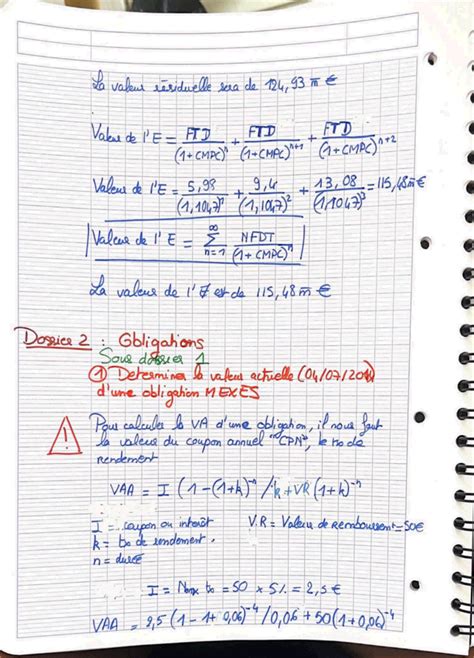 La valeur résiduelle sera de 124,93 m €
Valeur de l'E = FTD/(1+CMPC)^n + FTD/(1+CMPC)^n+1 + FTD/(1+CMPC)^n+2
Valeur de l'E = 5,98/(1,1047)^1 + 9,4/(1,1047)^2 + 13,08/(1,1047)^3 = 115,48m €
Valeur de l'E = ∑ ∞ n=1 NFDT/(1+CMPC)^n
La valeur de l'E est de 115,48 m €
Dossier 2 : Obligations
Sous dossier 1
① Determiner la valeur actuelle (04/07/
d'une obligation MEXES
Pour calculer la VA d'une obligation, il nous faut
la valeur du coupon annuel "CPN", le to de
rendement
VAA = I (1-(1+k)^-n / k + VR (1+k)^-n
I = coupon ou interêt
V.R = Valeur de remboursement = 50€
k = to de rendement.
n = durée
I = Nom x to = 50 x 5% = 2,5 €
VAA = 2,5 (1 - 1+ 0,06)^-4 / 0,06 + 50 (1+0,06)^-4